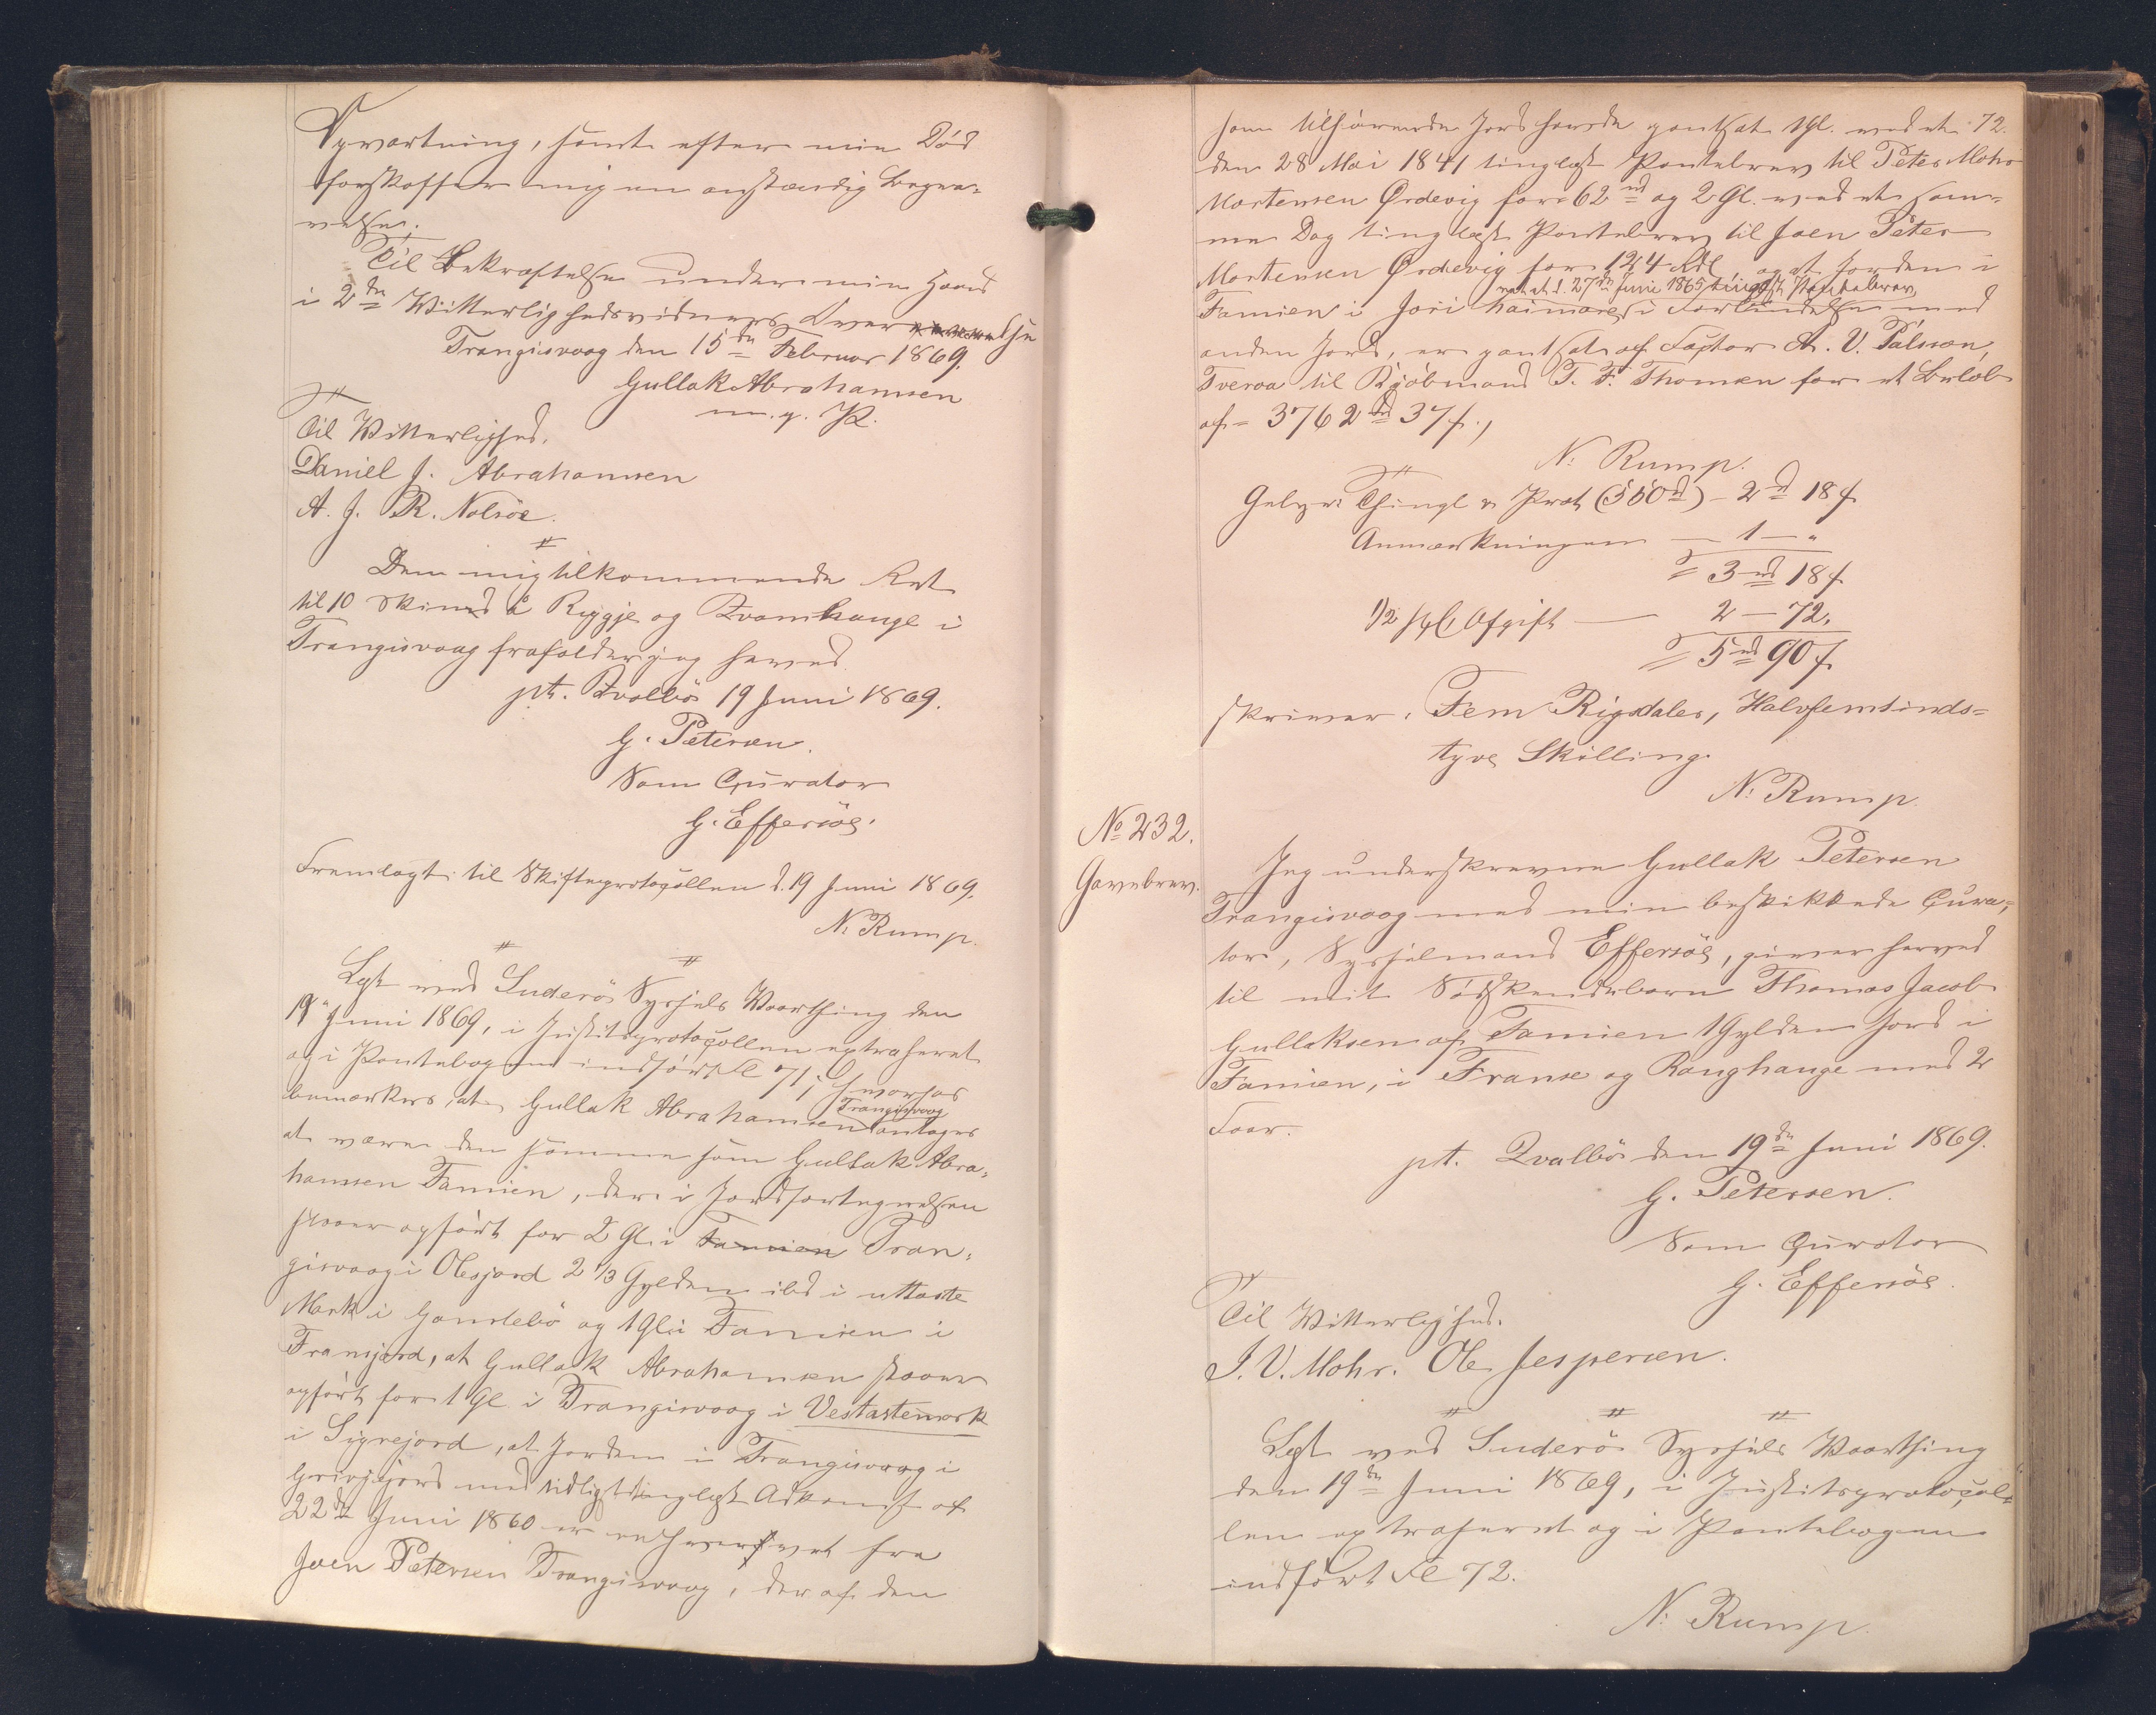 Opvartning, samt efter min Død
forskaffer mig en anstændig Begra-
velse.
Til Bekræftelse under min Haand
i 2de Vitterlighedsvidners Overværelse
Trangisvaag den 15de Februar 1869.
Gullak Abrahamsen
m. f. P.
Til Vitterlighed.
Daniel J. Abrahamsen
A. J. R. Nolsöe.
Den mig tilkommende Ret
til 10 Skind å Ryggje og Kvamhauge i
Trangisvaag frafalder jeg herved.
pt. Qvalbö 19 Juni 1869.
G. Petersen.
Som Curator
G. Effersöe.
Fremlagt til Skifteprotocollen d. 19 Juni 1869.
N. Rump.
Læst ved Suderö Syssels Vaarthing den
19de Juni 1869, i Justitsprotocollen extraheret
og i Pantebogen indført Fol 71; hvorhos
bemærkes, at Gullak Abrahamsen Trangisvaag antages
at være den samme som Gullak Abra-
hamsen Famien, der i Jordfortegnelsen
staaer opført for 2 Gl. i Famien Tran-
gisvaag i Olesjord 2 1/3 Gylden ibd i uttaste
Mark i Handebö og 1 Gl. i Famien i
Fransjord, at Gullak Abrahamsen staaer
opført for 1 Gl. i Trangisvaag i Vestastemark
i Signejord, at Jorden i Trangisvaag i
Grivjijord med sidligt tinglæst Adkomst af
22de Juni 1860 er erhvervet fra
Joen Petersen Trangisvaag, der af den
ham tilhørende Jord havde pantsat 1 Gl. ved et 72.
den 28 Mai 1841 tinglæst Pantebrev til Peter Mohr
Mortensen Ördevig for 62 rd og 2 Gl. ved et sam-
me Dag tinglæst Pantebrev til Joen Peter
Mortensen Ördevig for 124 Rdl og at Jorden i
ved et d. 27de Juni 1865 tinglæst Pantebrev,
Famien i Jøri haimare i Forbindelse med
anden Jord, er pantsat af Factor A. V. Pålsson,
Tveraa til Kjöbmand T. F. Thomsen for et Beløb
af 3762 rd 37 s.,
N. Rump.
Gebyr: Thingl. & Prot (550 rd) – 2 rd 18 s.
Anmærkningen – 1 – "
= 3 rd 18 s.
1/2 pCt. Afgift – 2 – 72.
= 5 rd 90 s.
skriver, Fem Rigsdaler, Halvfemsinds-
tyve Skilling.
N. Rump.
No 232.
Gavebrev.
Jeg underskrevne Gullak Petersen
Trangisvaag med min beskikkede Cura-
tor, Sysselmand Effersöe, giver herved
til mit Södskendebarn Thomas Jacob
Gullaksen af Famien 1 Gylden Jord i
Famien, i Franse og Raughauge med 2
Faar.
pt. Qvalbö den 19de Juni 1869.
G. Petersen.
Som Curator
G. Effersöe.
Til Vitterlighed.
J. V. Mohr. Ole Jespersen.
Læst ved Suderö Syssels Vaarthing
den 19de Juni 1869, i Justitsprotocol-
len extraheret og i Pantebogen
indført Fol 72.
N. Rump.